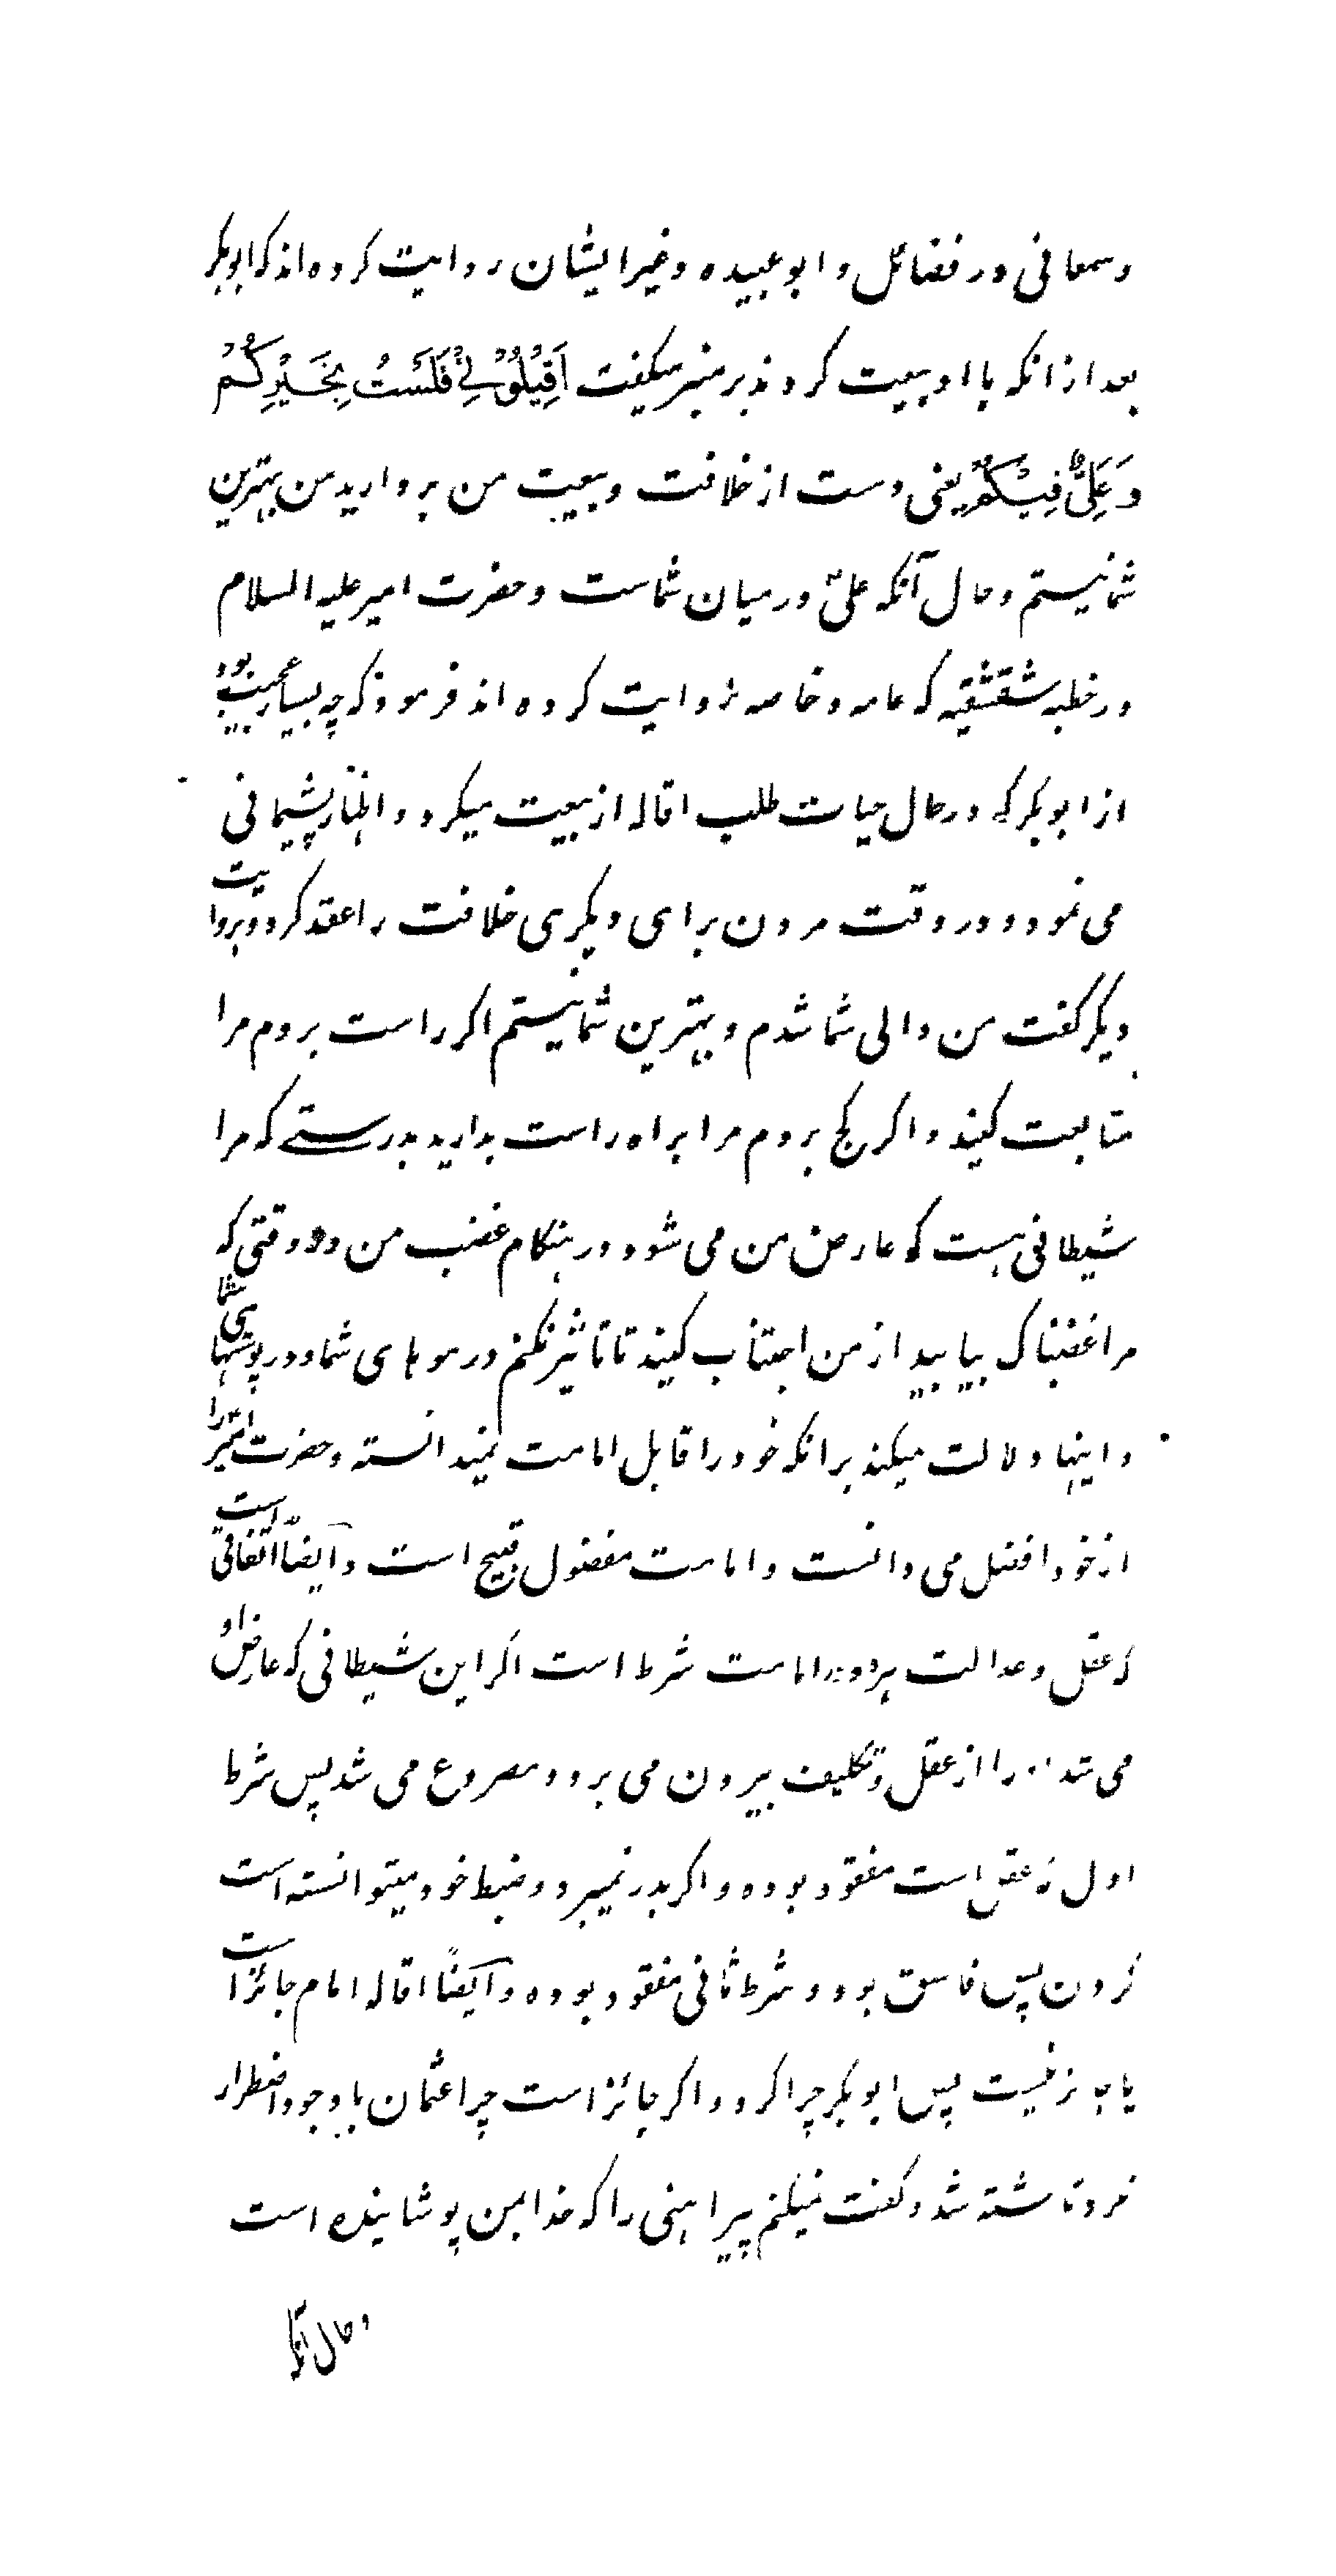 وسمعانی در فضائل و ابو عبیده و غیر ایشان روایت کرده اند که ابوبکر
بعد از انکه با او بیعت کردند بر منبر میگفت اَقِیْلُوْنِیْ فَلَسْتُ بِخَیْرِکُمْ
وَعَلِیٌّ فِیْکُمْ یعنی دست از خلافت و بیعت من بردارید من بهترین
شما نیستم و حال آنکه علی در میان شماست و حضرت امیر علیه السلام
در خطبه شقشقیه که عامه و خاصه روایت کرده اند فرمود که چه بسیار عجیب بود
از ابوبکر که در حال حیات طلب اقاله از بیعت میکرد و اظهار پشیمانی
می نمود و در وقت مردن برای دیگری خلافت را عقد کرد و بروایت
دیگر گفت من والی شما شدم و بهترین شما نیستم اگر راست بروم مرا
متابعت کنید و اگر کج بروم مرا براه راست بدارید بدرستے که مرا
شیطانی هست که عارض من می شود در هنگام غضب من و وقتی که
مرا غضبناک بیابید از من اجتناب کنید تا تاثیر نکنم در موهای شما و در پوستهای شما
و اینها دلالت میکند برانکه خود را قابل امامت نمیدانسته و حضرت امیر را
از خود افضل می دانست و امامت مفضول قبیح است و آیضاً اتفاقی است
که عقل و عدالت هر دو در امامت شرط است اگر این شیطانی که عارض او
می شد را از عقل و تکلیف بیرون می برد و مصروع می شد پس شرط
اول که عقل است مفقود بوده و اگر بدر نمیبرد و ضبط خود میتوانسته است
کردن پس فاسق بود و شرط ثانی مفقود بوده و آیضاً اقاله امام جائز است
یا جائز نیست پس ابوبکر چرا کرد و اگر جائز است چرا عثمان با وجود اضطرار
نکرد تا کشته شد و گفت نمیکنم پیراهنی را که خدا بمن پوشانیده است
و حال آنکه